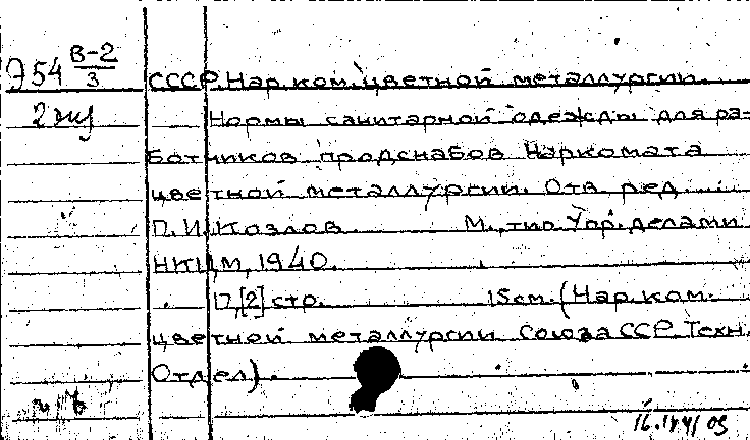 Э54 В-2/3
2 экз
СССР. Нар. ком. цветной металлургии.
Нормы санитарной одежды для ра-
ботников продснабов Наркомата
цветной металлургии. Отв. ред.
П. И. Козлов М., тип. Упр. делами
НКЦМ, 1940.
17,[2] стр. 15 см. (Нар. ком.
цветной металлургии Союза ССР. Техн.
Отдел).